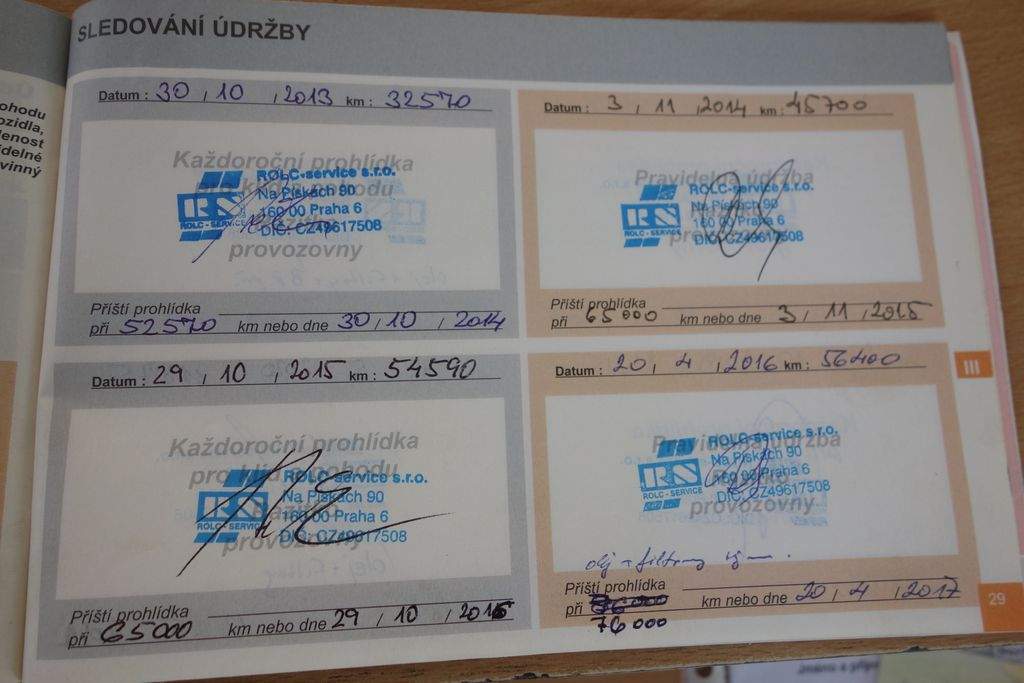 SLEDOVÁNÍ ÚDRŽBY
Datum : 30 , 10 , 2013 km : 32570
Každoroční prohlídka
pohodu
provozovny
RS
ROLC - SERVICE
ROLC-service s.r.o.
Na Pískách 90
160 00 Praha 6
DIČ: CZ49617508
Příští prohlídka
při 52570 km nebo dne 30 , 10 , 2014
Datum : 3 , 11 , 2014 km : 45700
Pravidelná údržba
RS
ROLC - SERVICE
ROLC-service s.r.o.
Na Pískách 90
160 00 Praha 6
DIČ: CZ49617508
Příští prohlídka
při 65 000 km nebo dne 3 , 11 , 2015
Datum : 29 , 10 , 2015 km : 54590
Každoroční prohlídka
pro pohodu
provozovny
RS
ROLC - SERVICE
ROLC-service s.r.o.
Na Pískách 90
160 00 Praha 6
DIČ: CZ49617508
Příští prohlídka
při 65000 km nebo dne 29 , 10 , 2016
Datum : 20 , 4 , 2016 km : 56400
Pravidelná údržba
provozovny
RS
ROLC - SERVICE
ROLC-service s.r.o.
Na Pískách 90
160 00 Praha 6
DIČ: CZ49617508
olej + filtry
Příští prohlídka
při 76 000 km nebo dne 20 , 4 , 2017
III
29
ohodu
ozidla,
enost
idelné
vinný